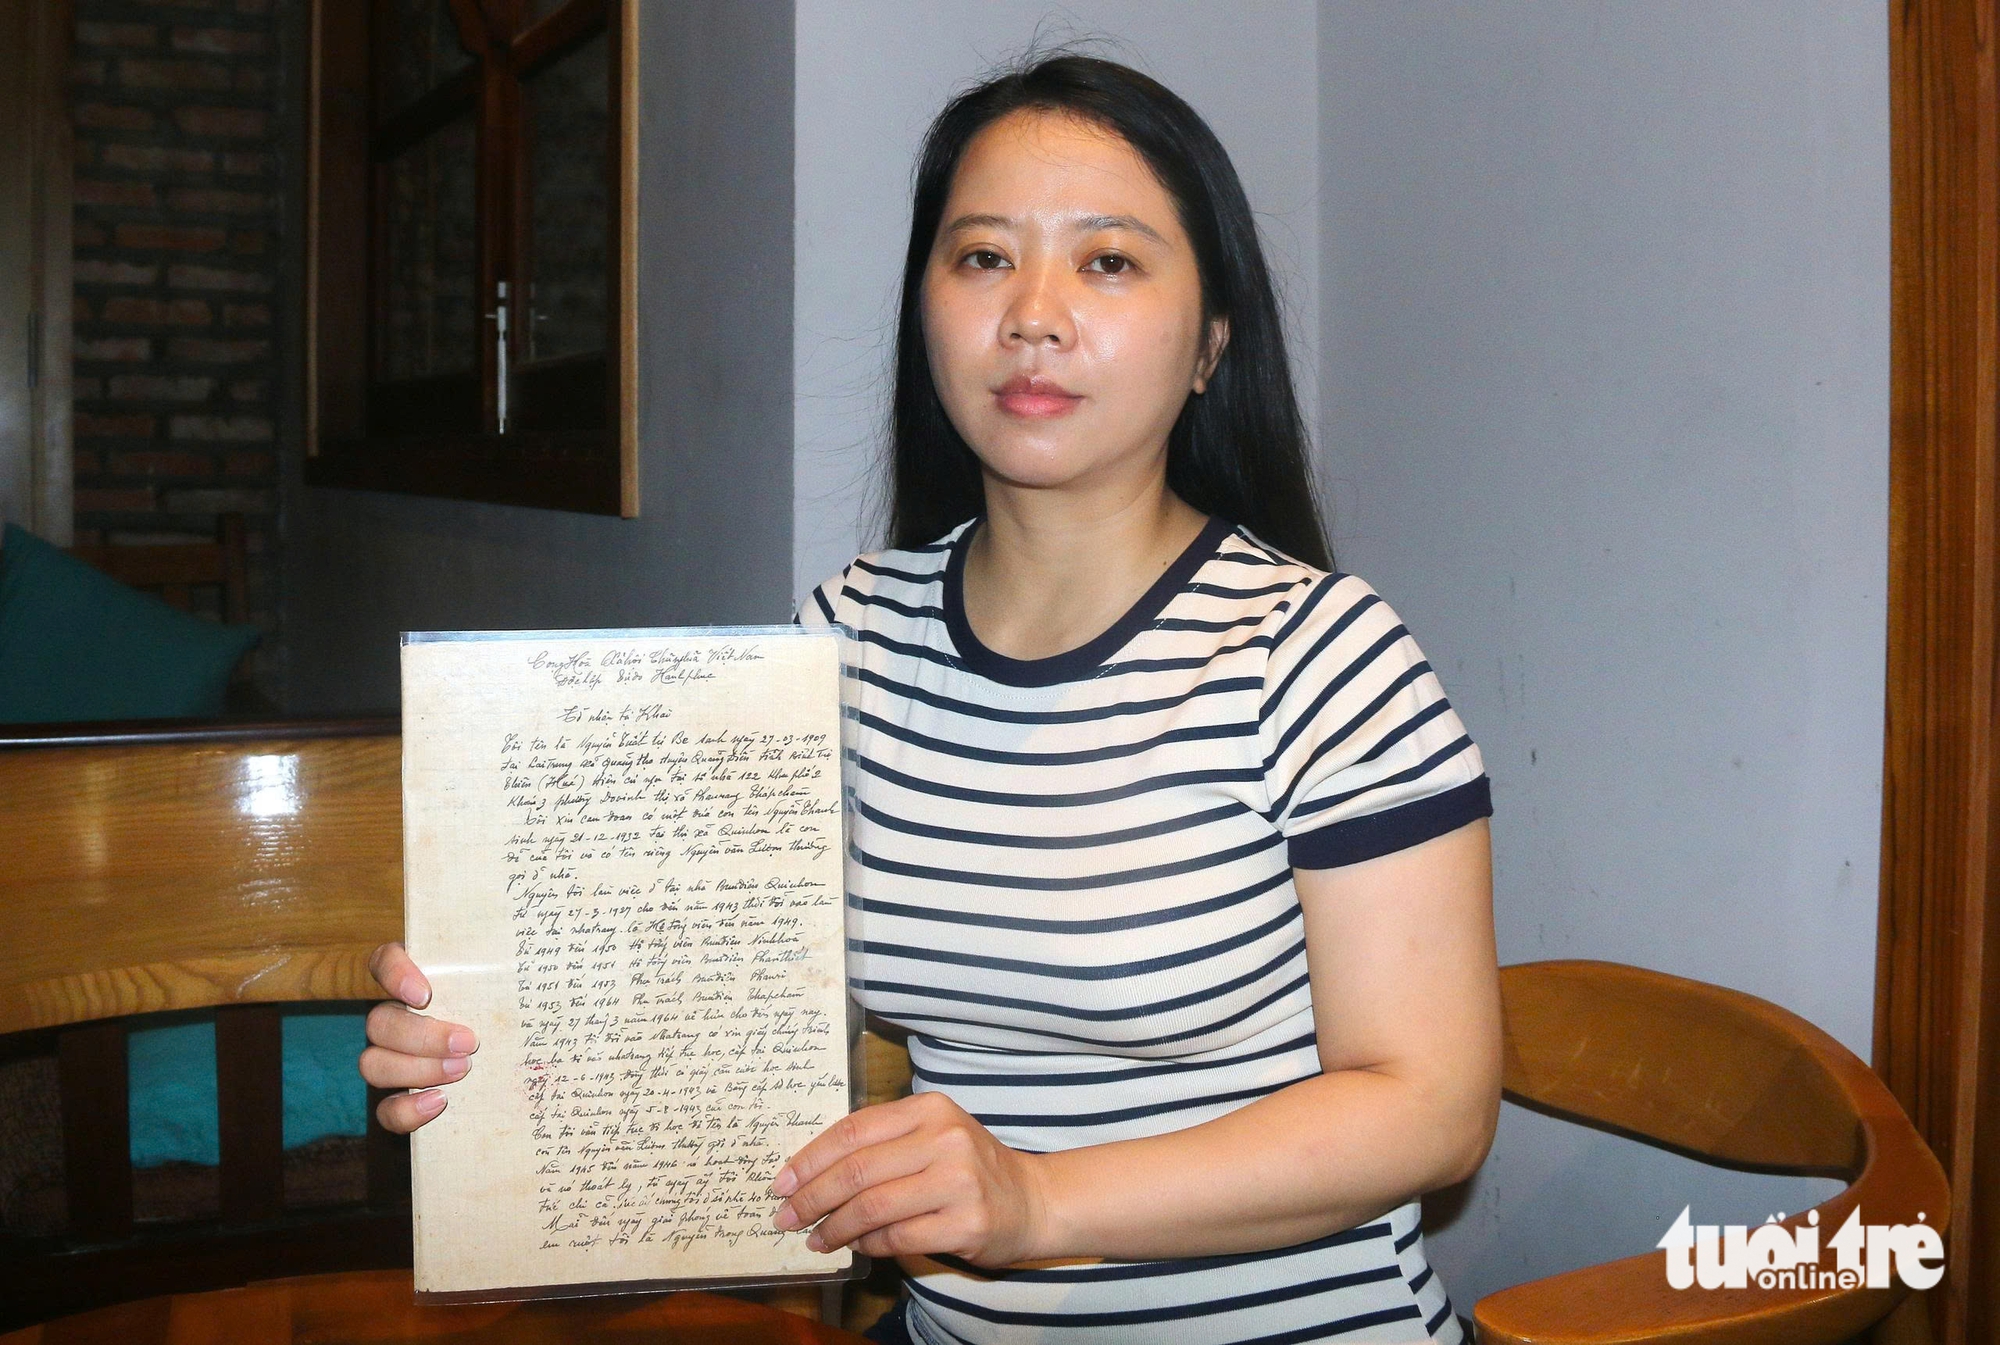 Cộng Hoà Xã hội Chủ nghĩa Việt Nam
Độc lập Tự do Hạnh phúc
Tờ nhân tự Khai
Tôi tên là Nguyễn Tuất tự Be sanh ngày 27-03-1909
tại Lai Trung xã Quảng thọ Huyện Quảng Điền tỉnh Bình Trị
Thiên (Huế) Hiện cư ngụ tại số nhà 122 Khu phố 2
Khóm 3 phường Đô vinh thị xã Phanrang Thápchàm
Tôi xin cam đoan có một đứa con tên Nguyễn Thanh
sinh ngày 21-12-1932 tại thị xã Quinhon là con
đẻ của tôi và có tên riêng Nguyễn văn Lượm thường
gọi ở nhà.
Nguyên tôi làm việc ở tại nhà Bưu điện Quinhon
từ ngày 27-3-1927 cho đến năm 1943 thời đổi vào làm
việc tại nhatrang là tống viên đến năm 1949.
Từ 1949 đến 1950 tống viên Bưu điện Ninhhoà
Từ 1950 đến 1951 tống viên Bưu điện Phanthiết
Từ 1951 đến 1953 Phụ trách Bưu điện Phanri
Từ 1953 đến 1964 Phụ trách Bưu điện Thapcham
và ngày 27 tháng 3 năm 1964 về hưu cho đến ngày nay.
Năm 1943 tôi đổi vào Nhatrang có xin giấy chứng
học bạ để vào nhatrang tiếp tục học, cấp tại Quinhon
ngày 12-6-1943. Đồng thời có giấy căn cước học sinh
cấp tại Quinhon ngày 20-4-1943 và Bằng cấp sơ học yếu lược
cấp tại Quinhon ngày 5-8-1943 của con tôi.
Con tôi vẫn tiếp tục đi học để tên là Nguyễn Thanh
còn tên Nguyễn văn Lượm thường gọi ở nhà.
Năm 1945 đến năm 1946 có hoạt động tại
và nó thoát ly, từ ngày ấy tôi không
tức chi cả
Mãi đến ngày giải phóng về toàn
em ruột tôi là Nguyễn Trọng Quang
tuổi trẻ
online